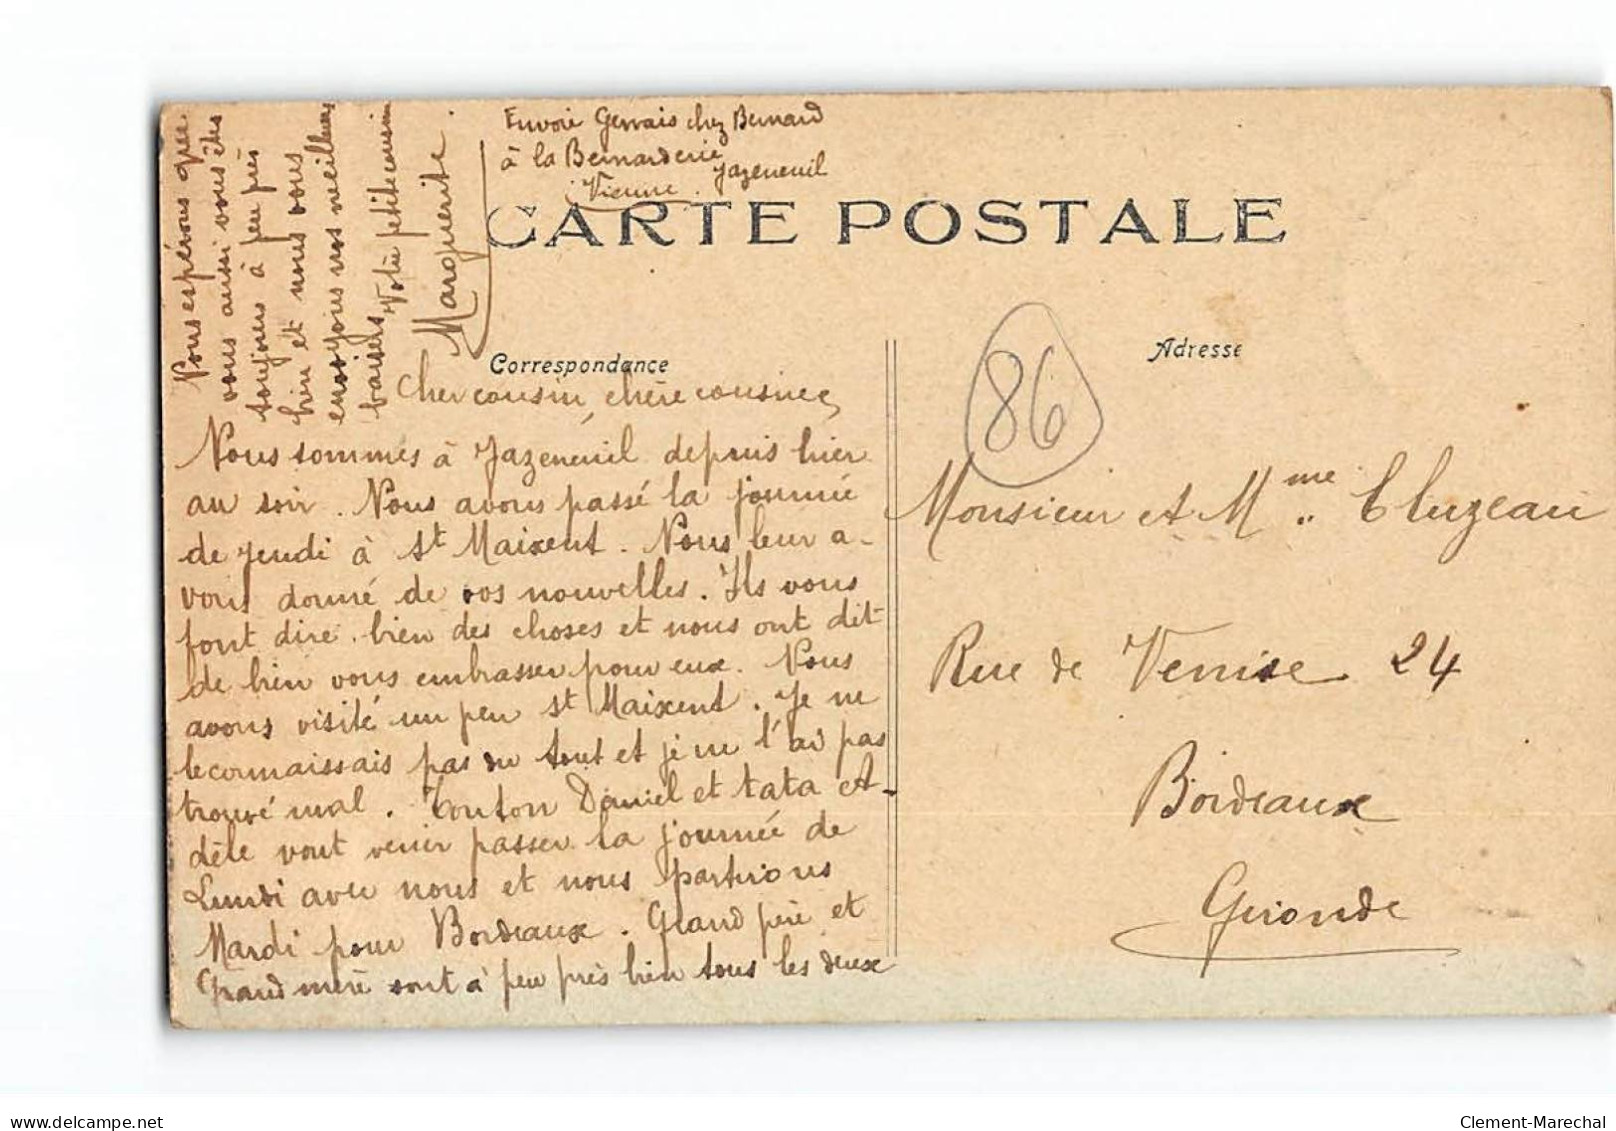 Envoie Gervais chez Bernard
à la Bernarderie
Jazeneuil
Vienne.
CARTE POSTALE
Correspondance
Adresse
86
Cher cousin, chère cousine,
Nous sommes à Jazeneuil depuis hier
au soir. Nous avons passé la journée
de Jeudi à St Maixent. Nous leur a-
vons donné de vos nouvelles. Ils vous
font dire bien des choses et nous ont dit
de bien vous embrasser pour eux. Nous
avons visité un peu St Maixent. Je ne
le connaissais pas du tout et je ne l'ai pas
trouvé mal. Tonton Daniel et tata A-
dèle vont venir passer la journée de
Lundi avec nous et nous partirons
Mardi pour Bordeaux. Grand père et
Grand mère sont à peu près bien tous les deux
Nous espérons que
vous aussi vous êtes
toujours à peu près
bien et nous vous
envoyons nos meilleurs
baisers
Votre petite cousine
Marguerite.
Monsieur et Mme Cluzeau
Rue de Venise 24
Bordeaux
Gironde
delcampe.net
Clement-Marechal